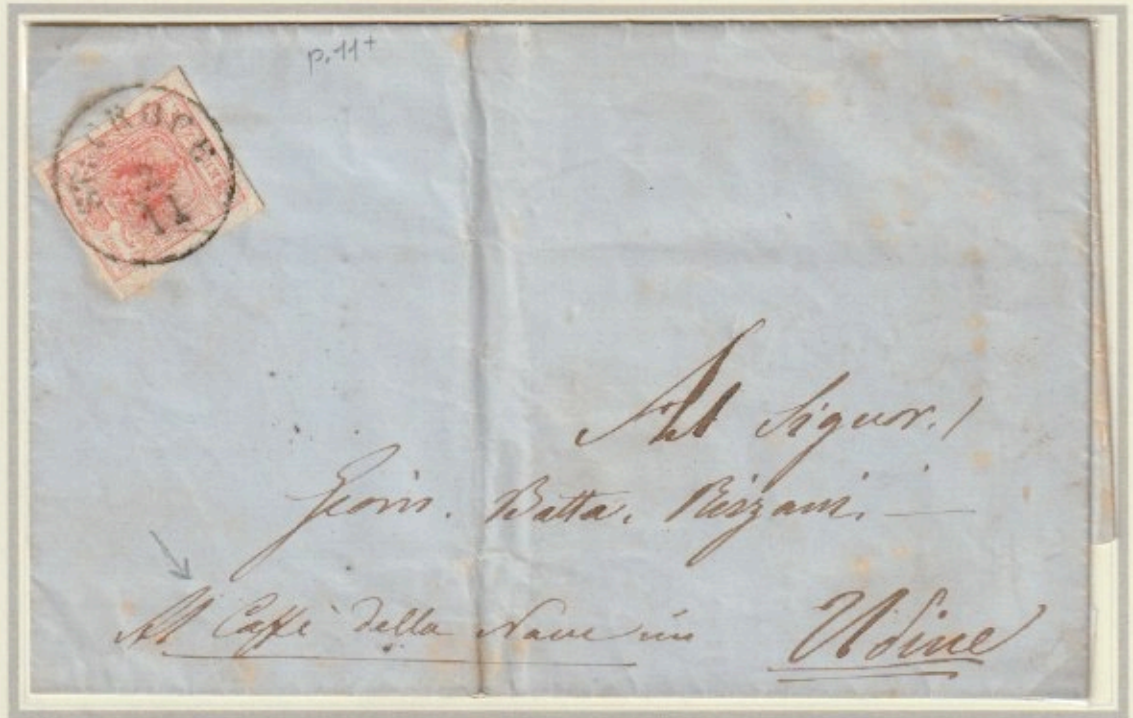 p. 11+
11
Al Signor.
Giovn. Batta. Rizzani.
Al Caffè della Nave in Udine